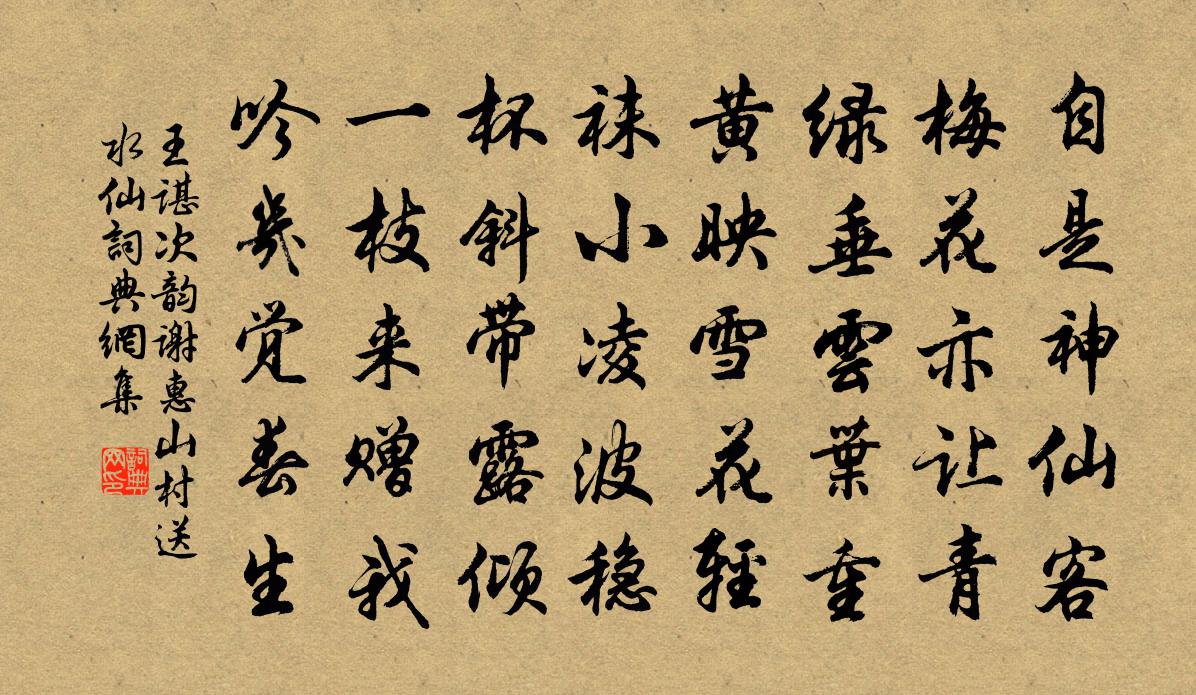 自是神仙客
梅花亦让青
绿垂雲葉重
黄映雪花轻
袜小凌波稳
杯斜带露倾
一枝来赠我
吟几觉春生
王谌次韵谢惠山村送
水仙詞典網集
詞典
网印